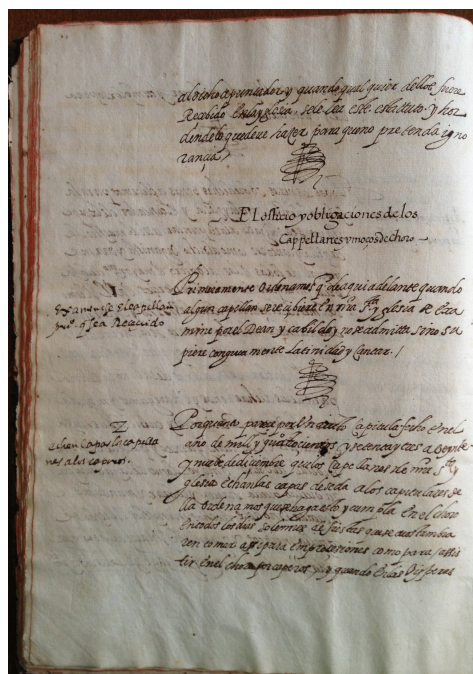 al dicho apuntador y quando qual quier dellos fuere
Recebido en la yglesia, se le lea este estatuto y hor
den de lo que deve hazer para que no pretenda igno
rancia /
El officio y obligaciones de los
Cappellanes y moços de Choro
Examinese el capellan
que sea Recevido
Primeramente Ordenamos q̃ de aqui adelante quando
algun capellan se recibiere en nr̃a Sta yglesia se exa
mine por el Dean y cabildo y no se admitta sino su
piere congruamente Latinidad y Cantar /
2
echen capas los capella
nes a los caperos.
Porque parece por Un estatuto capitular fecho en el
año de mil y quatrocientos y setenta y tres a Veynte
y nueve de diciembre que los Capellanes de nr̃a Sta
yglesia echan las capas de seda a los capitulares de
lla Ordenamos que se haga ello y cumpla En el choro
en todos los dias solemnes de fiestas que se acostumbra
ren tomar assi para en processiones como para assis
tir En el choro por caperos y quando en las Visperas